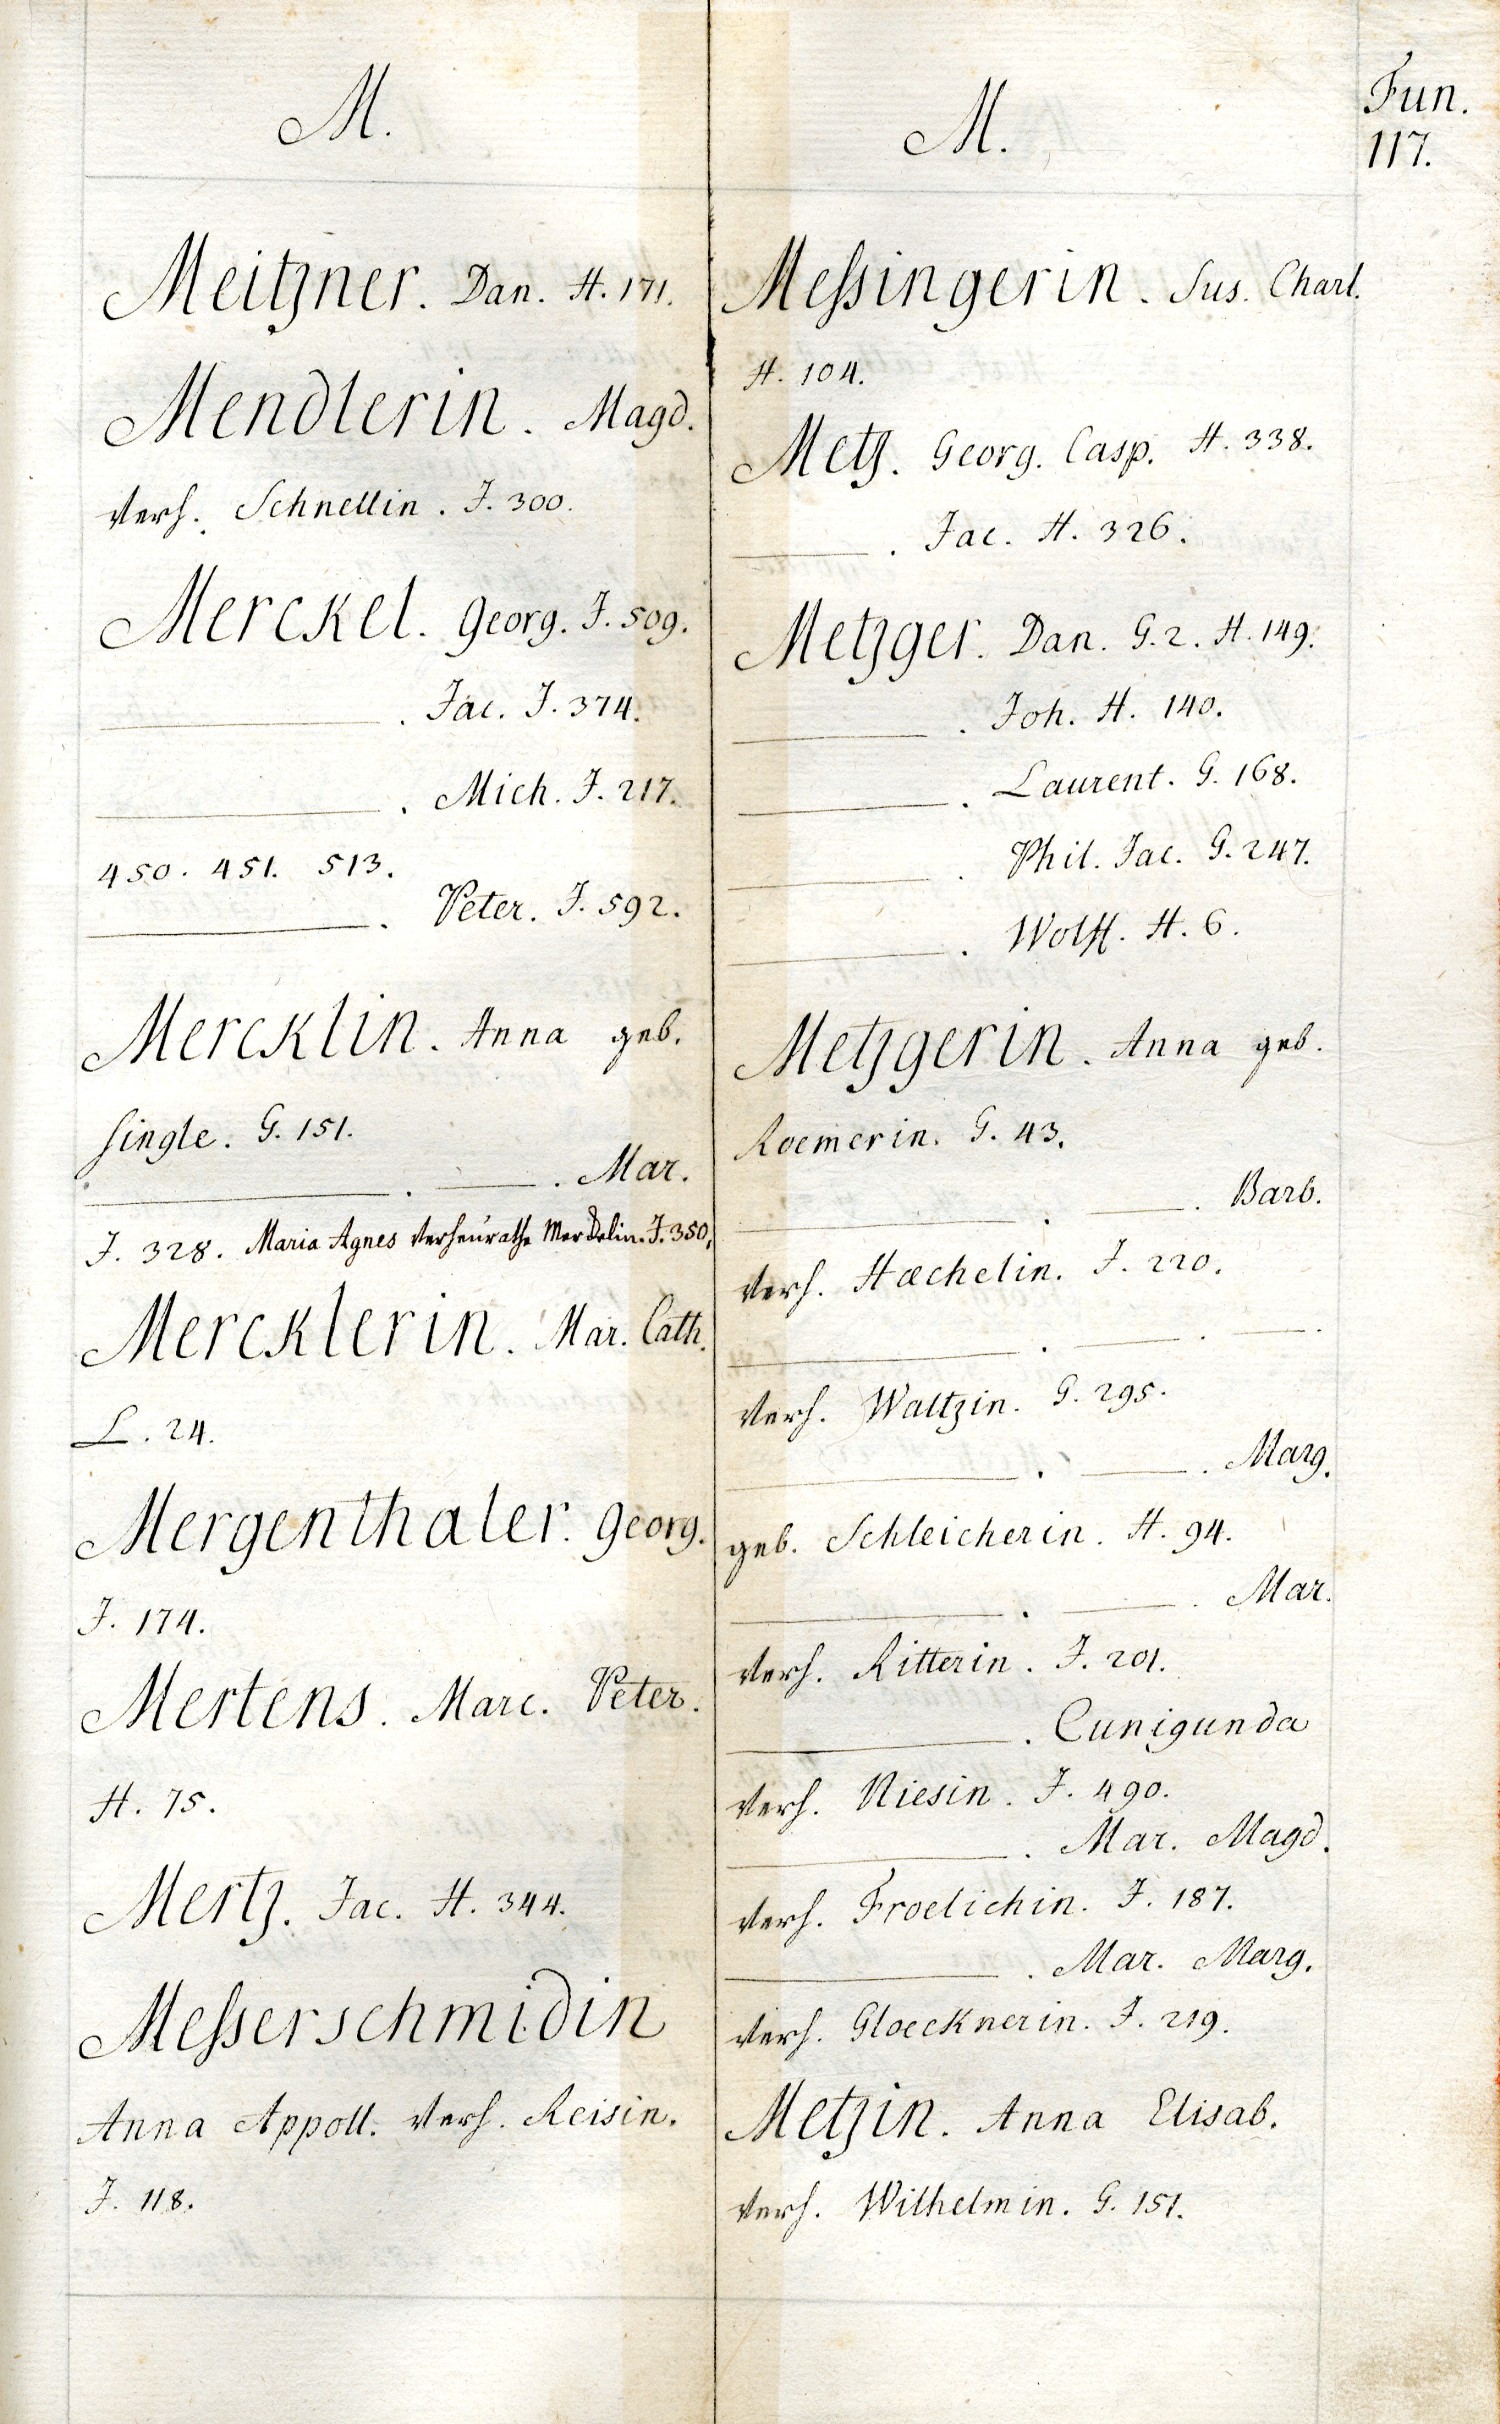 M.
Meitzner. Dan. H. 171.
Mendlerin. Magd.
verh. Schnellin. J. 300.
Merckel. Georg. J. 509.
———. Jac. J. 374.
———. Mich. J. 217.
450. 451. 513.
———. Peter. J. 592.
Mercklin. Anna geb.
Single. G. 151.
———. ———. Mar.
J. 328. Maria Agnes verheurathe J. 350.
Mercklerin. Mar. Cath.
L. 24.
Mergenthaler. Georg.
J. 174.
Mertens. Marc. Peter.
H. 75.
Mertz. Jac. H. 344.
Meſserschmidin
Anna Appoll. verh. Reisin.
J. 118.
M.
Meſsingerin. Sus. Charl.
H. 104.
Metz. Georg. Casp. H. 338.
———. Jac. H. 326.
Metzger. Dan. G. 2. H. 149.
———. Joh. H. 140.
———. Laurent. G. 168.
———. Phil. Jac. G. 247.
———. Wolff. H. 6.
Metzgerin. Anna geb.
Roemerin. G. 43.
———. ———. Barb.
verh. Hæchelin. J. 220.
———. ———. ———.
verh. Waltzin. G. 295.
———. ———. Marg.
geb. Schleicherin. H. 94.
———. ———. Mar.
verh. Ritterin. J. 201.
———. Cunigunda
verh. Niesin. J. 490.
———. Mar. Magd.
verh. Froelichin. J. 187.
———. Mar. Marg.
verh. Gloecknerin. J. 219.
Metzin. Anna Elisab.
verh. Wilhelmin. G. 151.
Fun.
117.